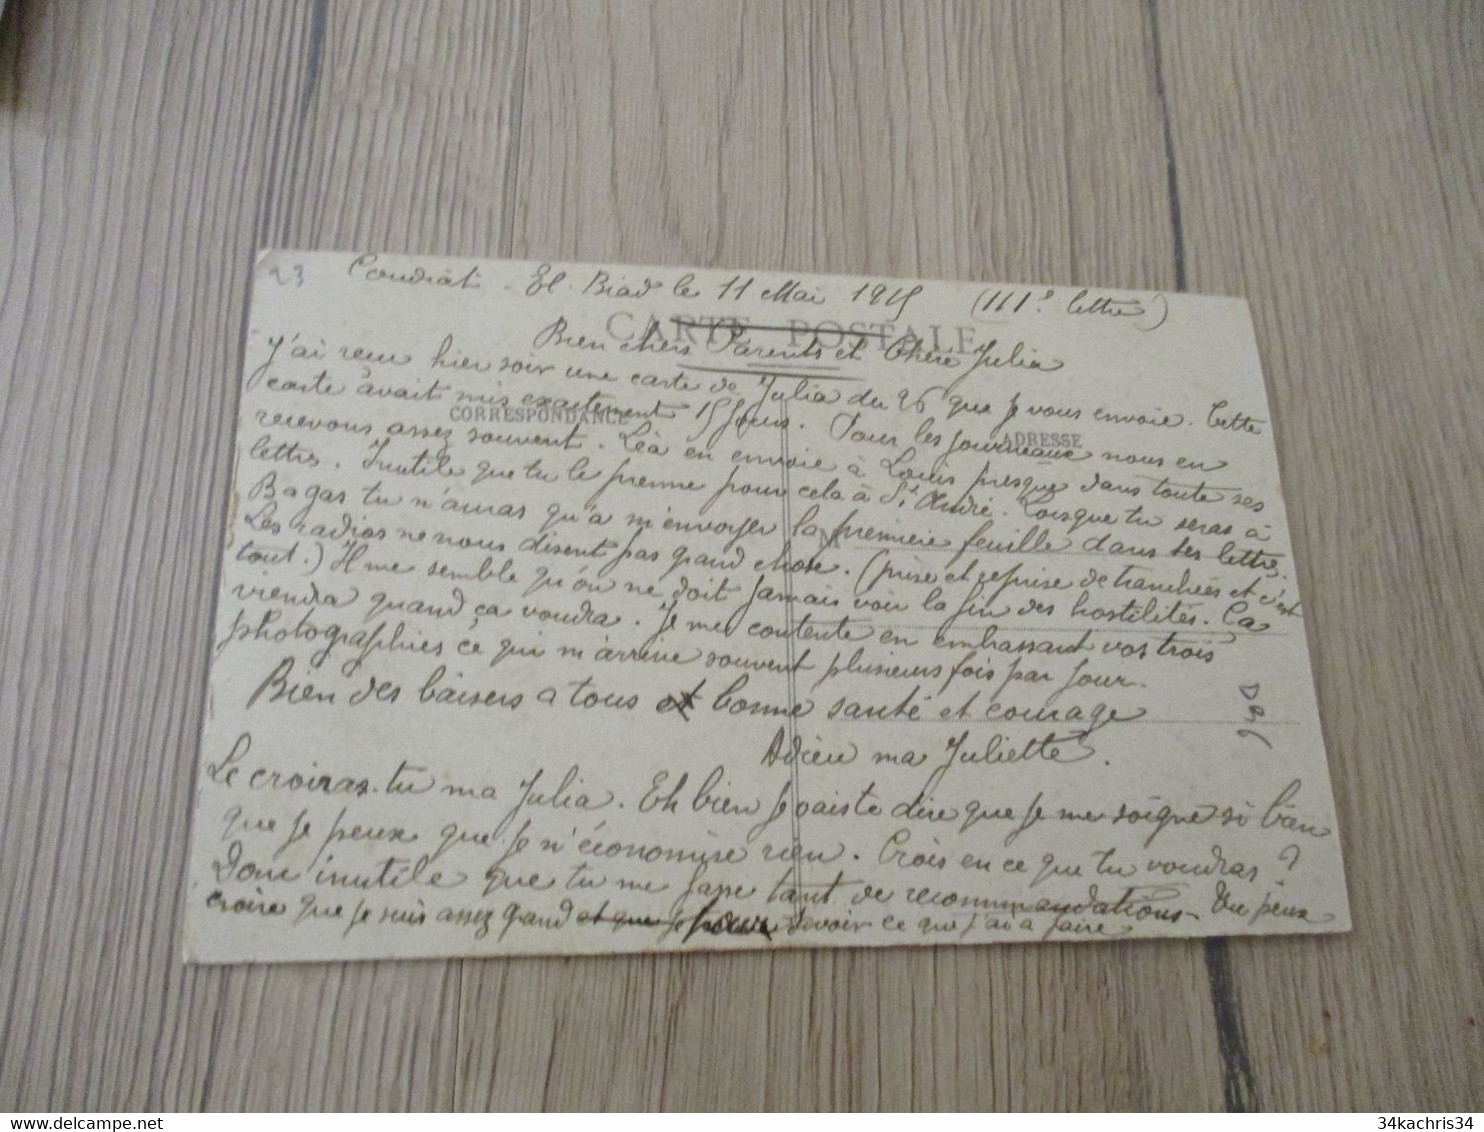 23
Coudiat - El. Biad le 11 Mai 1915 (111e lettre)
CARTE POSTALE
Bien chers Parents et Chère Julia
J'ai reçu hier soir une carte de Julia du 26 que je vous envoie. Cette
carte avait mis exactement 15 jours. Pour les journeaux nous en
CORRESPONDANCE
ADRESSE
recevous assez souvent. Léa en envoie à Louis presque dans toute ses
lettres. Inutile que tu le prenne pour cela à St André. Lorsque tu seras à
Bagas tu n'auras qu'à m'envoyer la première feuille dans tes lettres.
M
Les radios ne nous disent pas grand chose. (prise et reprise de tranchées et c'est
tout.) Il me semble qu'on ne doit jamais voir la fin des hostilités. Ca
viendra quand ça voudra. Je me contente en embrassant vos trois
photographies ce qui m'arrive souvent plusieurs fois par jour.
Bien des baisers a tous et bonne santé et courage
Adieu ma Juliette.
Le croiras-tu ma Julia. Eh bien je vais te dire que je me soigne si bien
que je peux que je n'économise rien. Crois en ce que tu voudras?
Donc inutile que tu me fasse tant de recommandations - Tu peux
croire que je suis assez grand et que je pour savoir ce que j'ai à faire
34kachris34